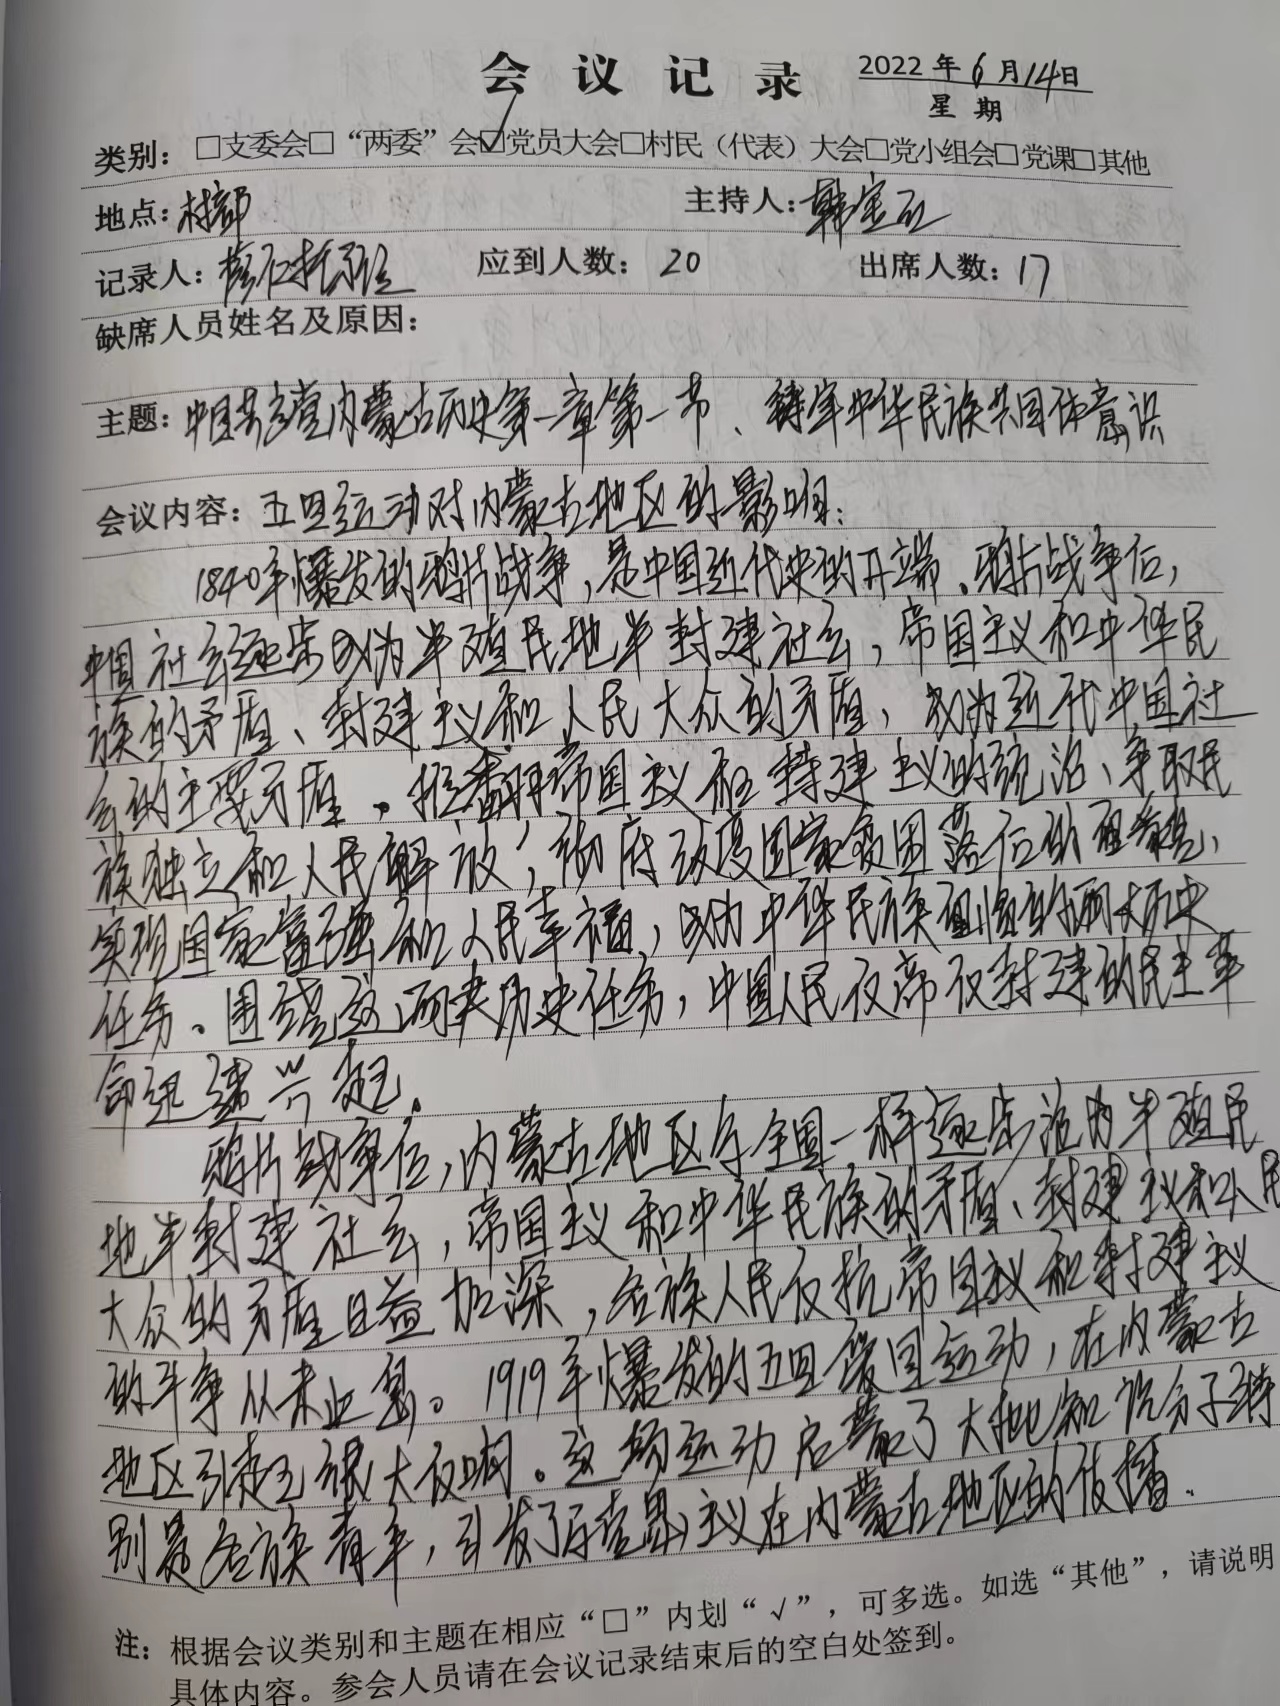 会议记录 2022年6月14日
星期
类别：□支委会□“两委”会☑党员大会□村民（代表）大会□党小组会□党课□其他
地点：村部 主持人：韩宝
记录人： 应到人数：20 出席人数：17
缺席人员姓名及原因：
主题：中国共产党内蒙古历史第一章第一节、铸牢中华民族共同体意识
会议内容：五四运动对内蒙古地区的影响：
1840年爆发的鸦片战争，是中国近代史的开端。鸦片战争后，
中国社会逐步成为半殖民地半封建社会，帝国主义和中华民
族的矛盾、封建主义和人民大众的矛盾，成为近代中国社
会的主要矛盾。推翻帝国主义和封建主义的统治、争取民
族独立和人民解放，彻底改变国家贫困落后的面貌、
实现国家富强和人民幸福，成为中华民族面临的两大历史
任务。围绕这两大历史任务，中国人民反帝反封建的民主革
命迅速兴起。
鸦片战争后，内蒙古地区与全国一样逐步沦为半殖民
地半封建社会，帝国主义和中华民族的矛盾、封建主义和人民
大众的矛盾日益加深，各族人民反抗帝国主义和封建主义
的斗争从未止息。1919年爆发的五四爱国运动，在内蒙古
地区引起了很大反响。这场运动启蒙了大批知识分子特
别是各族青年，引发了马克思主义在内蒙古地区的传播。
注：根据会议类别和主题在相应“□”内划“√”，可多选。如选“其他”，请说明
具体内容。参会人员请在会议记录结束后的空白处签到。